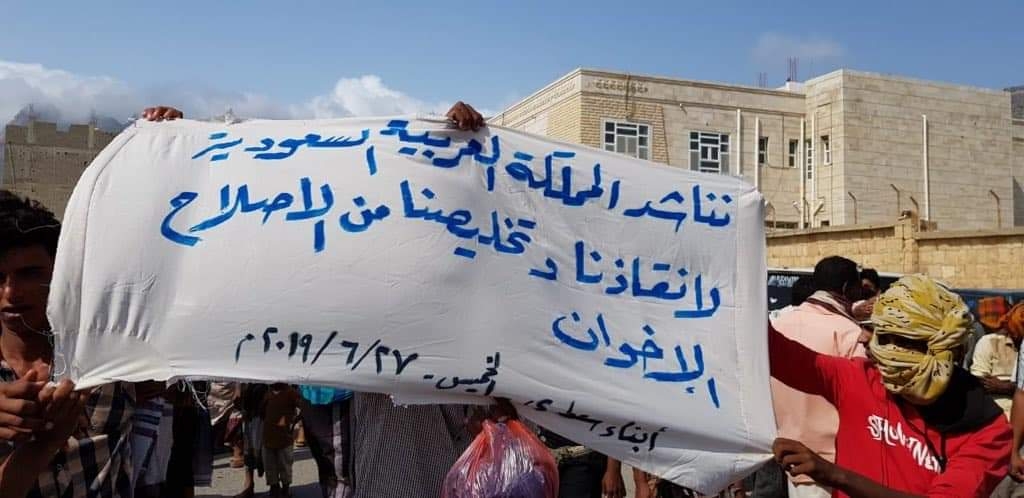 نناشد المملكة العربية السعودية
لانقاذنا وتخليصنا من الاصلاح
الإخوان
الخميس - ٢٧/٦/٢٠١٩م
أبناء سقطرى